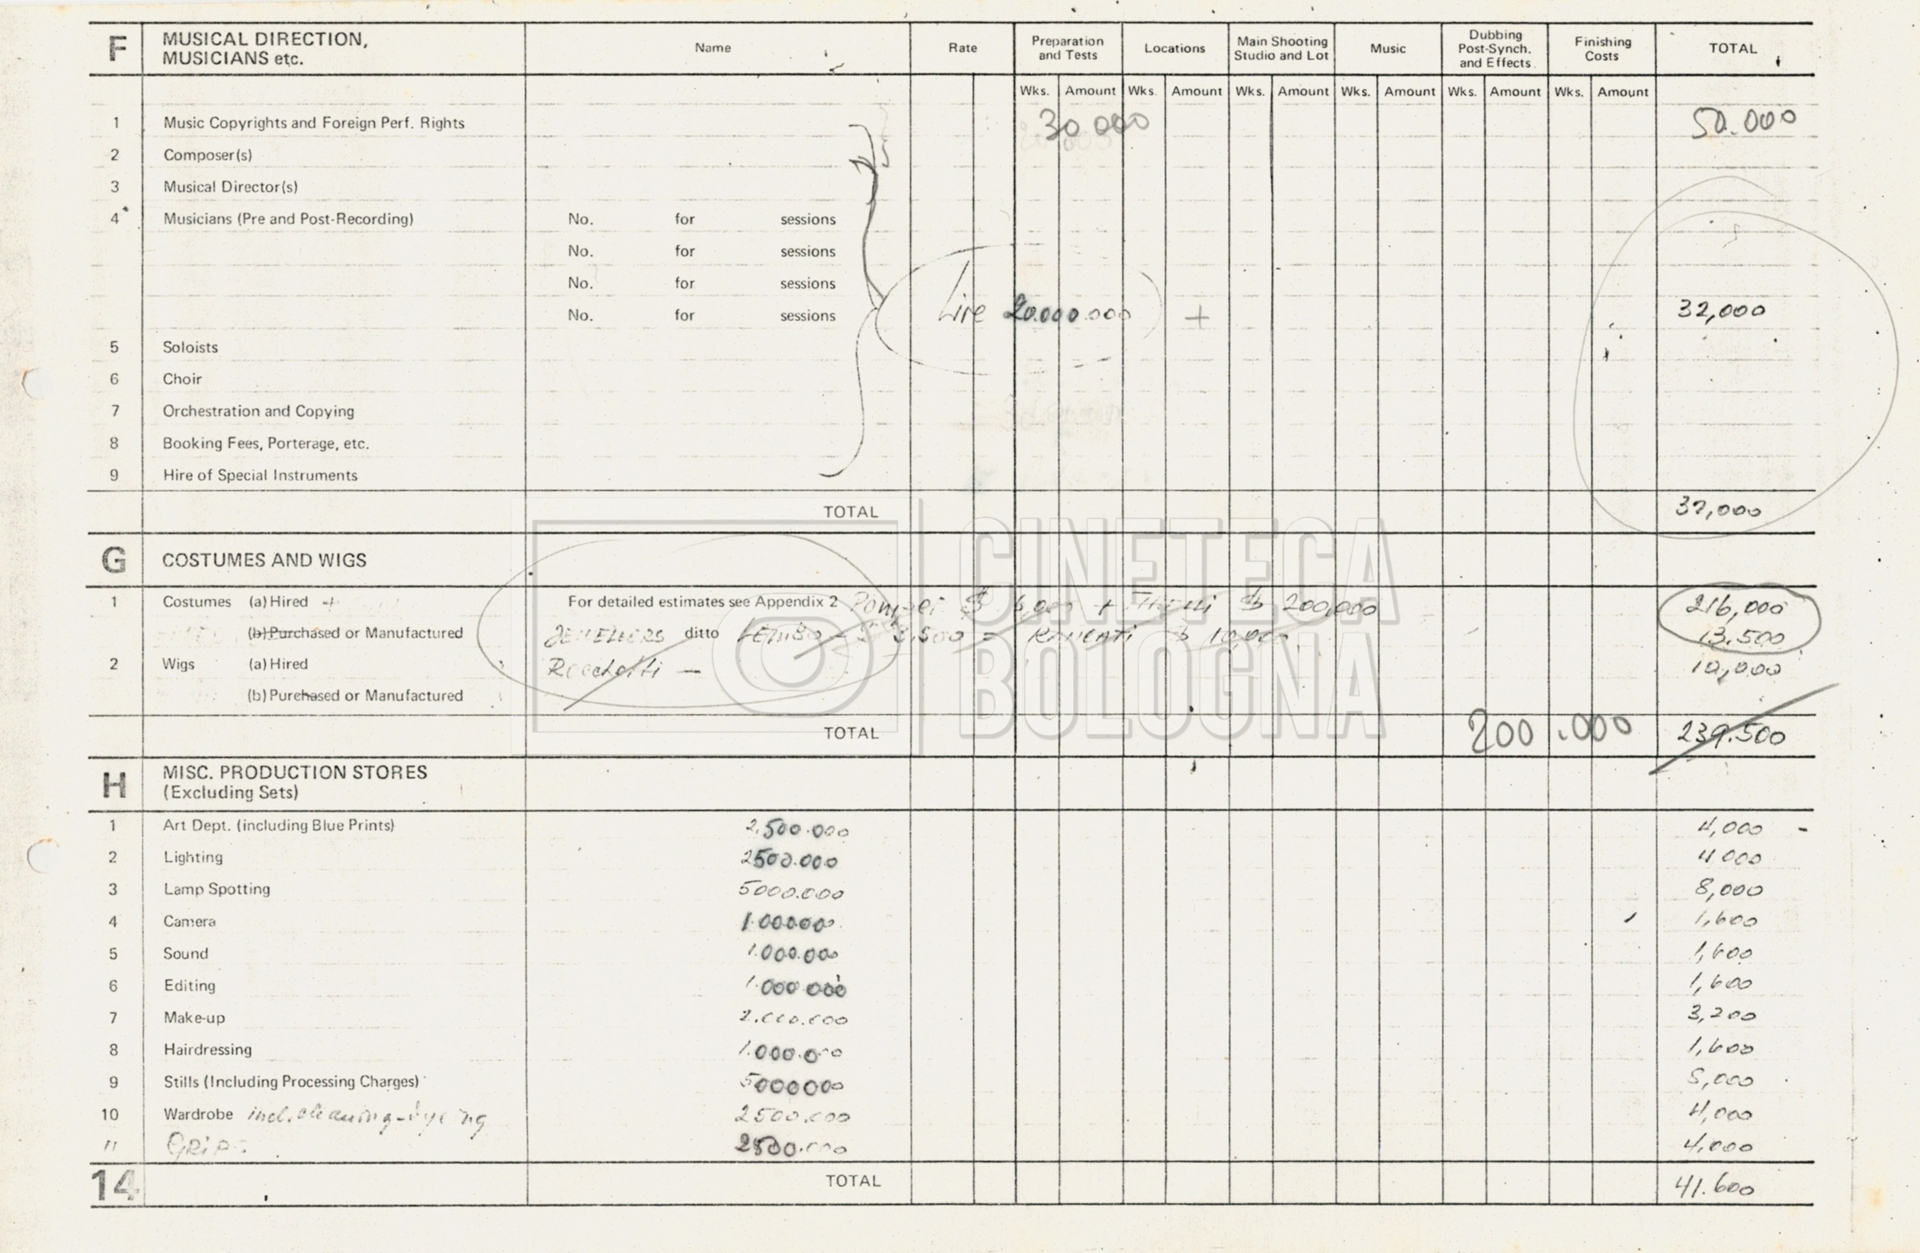 F MUSICAL DIRECTION, MUSICIANS etc. Name Rate Preparation and Tests Locations Main Shooting Studio and Lot Music Dubbing Post-Synch. and Effects Finishing Costs TOTAL
Wks. Amount Wks. Amount Wks. Amount Wks. Amount Wks. Amount Wks. Amount
1 Music Copyrights and Foreign Perf. Rights 30 000 50.000
2 Composer(s)
3 Musical Director(s)
4 Musicians (Pre and Post-Recording) No. for sessions
No. for sessions
No. for sessions
No. for sessions Lire 20.000.000 + 32,000
5 Soloists
6 Choir
7 Orchestration and Copying
8 Booking Fees, Porterage, etc.
9 Hire of Special Instruments
TOTAL 32,000
CINETECA
BOLOGNA
G COSTUMES AND WIGS
1 Costumes (a) Hired + For detailed estimates see Appendix 2 Pompei $ + $ 200,000 216,000
(b) Purchased or Manufactured ditto 3,500 = $ 10,000 13.500
2 Wigs (a) Hired Rocchetti — 10,000
(b) Purchased or Manufactured
TOTAL 200.000 239.500
H MISC. PRODUCTION STORES (Excluding Sets)
1 Art Dept. (including Blue Prints) 2.500.000 4,000 -
2 Lighting 2500.000 4000
3 Lamp Spotting 5000.000 8,000
4 Camera 1.000000 1,600
5 Sound 1.000.000 1,600
6 Editing 1.000.000 1,600
7 Make-up 2.000.000 3,200
8 Hairdressing 1.000.000 1,600
9 Stills (Including Processing Charges) 5000000 8,000
10 Wardrobe incl. cleaning-dyeing 2500.000 4,000
11 GRIPS 2500.000 4,000
14 TOTAL 41.600